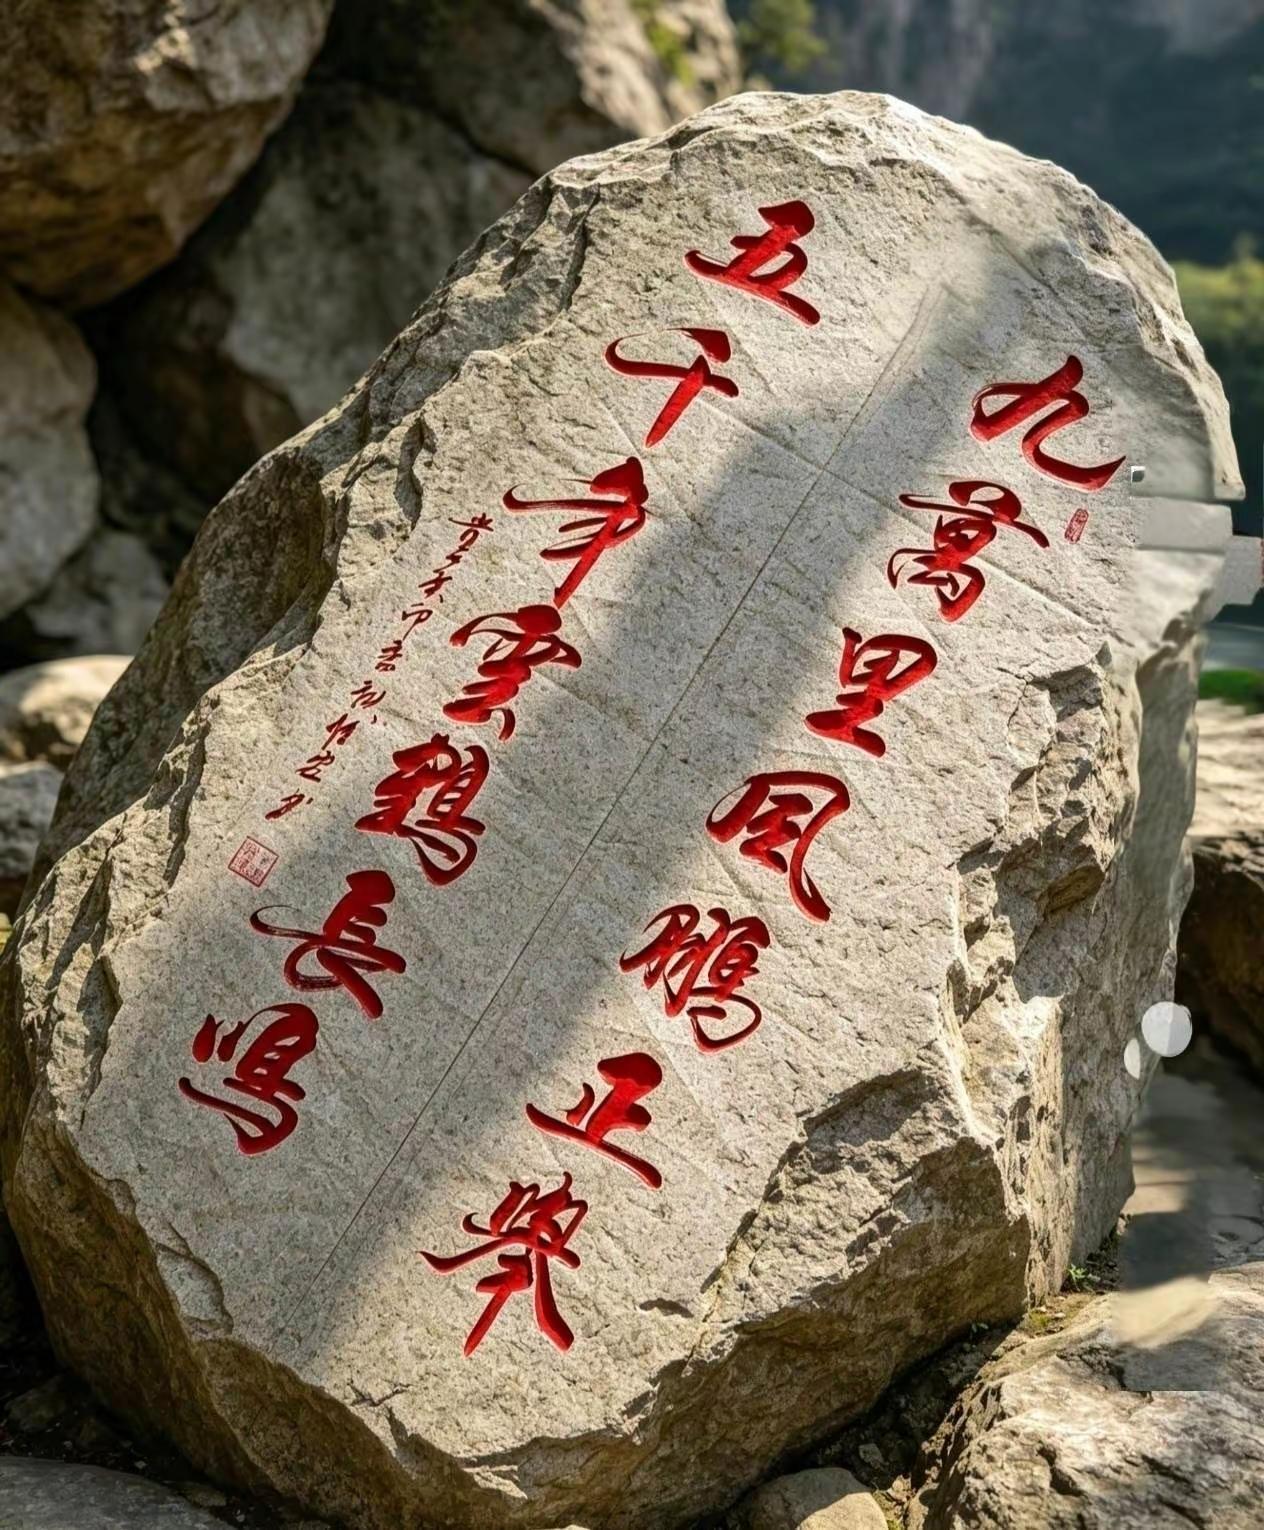 九萬里風鵬正舉
五千年雲鶴長鳴
癸卯春